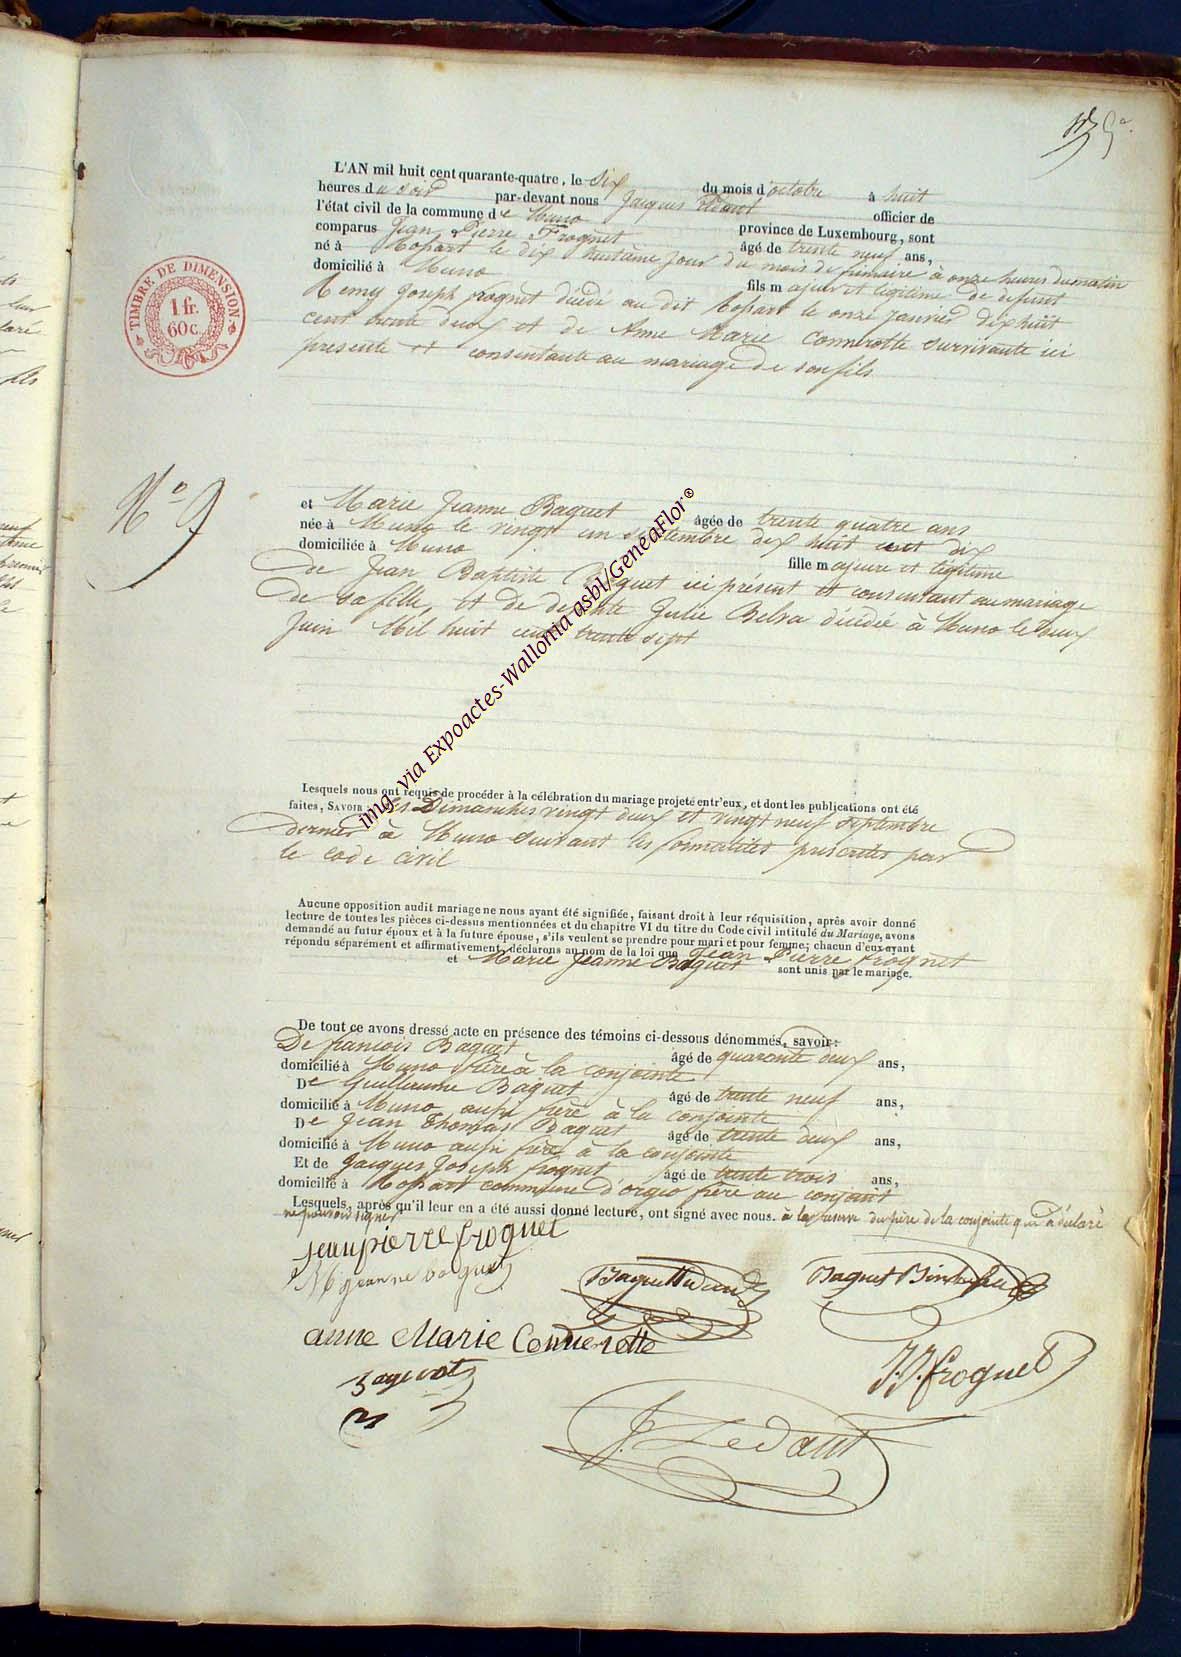 L'AN mil huit cent quarante-quatre, le Six du mois d'octobre à huit
heures du soir par-devant nous Jacques Ledant officier de
l'état civil de la commune de Muno province de Luxembourg, sont
comparus Jean Pierre Frognet âgé de trente neuf ans,
né à Rossart le dix huitième jour du mois de frimaire à onze heures du matin
domicilié à Muno fils majeur et légitime de défunt
Remy Joseph frognet décédé au dit Rossart le onze janvier dix huit
cent trente deux et de Anne Marie Connerotte survivante ici
présente et consentante au mariage de son fils
TIMBRE DE DIMENSION.
1 fr.
60 c.
N° 9
et Marie Jeanne Baquet âgée de trente quatre ans
née à Muno le vingt un septembre dix huit cent dix
domiciliée à Muno fille majeure et légitime
de Jean Baptiste Baquet ici présent et consentant au mariage
de sa fille, et de défunte Julie Belva décédée à Muno le deux
Juin Mil huit cent trente sept
Lesquels nous ont requis de procéder à la célébration du mariage projeté entr'eux, et dont les publications ont été
faites, SAVOIR : les Dimanches vingt deux et vingt neuf septembre
dernier à Muno suivant les formalités prescrites par
le code civil
Aucune opposition audit mariage ne nous ayant été signifiée, faisant droit à leur réquisition, après avoir donné
lecture de toutes les pièces ci-dessus mentionnées et du chapitre VI du titre du Code civil intitulé du Mariage, avons
demandé au futur époux et à la future épouse, s'ils veulent se prendre pour mari et pour femme; chacun d'eux ayant
répondu séparément et affirmativement, déclarons au nom de la loi que Jean Pierre frognet
et Marie Jeanne Baquet sont unis par le mariage.
De tout ce avons dressé acte en présence des témoins ci-dessous dénommés, savoir :
De francois Baquet âgé de quarante deux ans,
domicilié à Muno frère à la conjointe
De Guillaume Baquet âgé de trente neuf ans,
domicilié à Muno aussi frère à la conjointe
De Jean Thomas Baquet âgé de trente deux ans,
domicilié à Muno aussi frère à la conjointe
Et de Jacques Joseph frognet âgé de trente trois ans,
domicilié à Rossart commune d'orgeo frère au conjoint
Lesquels, après qu'il leur en a été aussi donné lecture, ont signé avec nous. à la réserve du père de la conjointe qui a déclaré
ne pouvoir signer
jeanpierre frognet
M jeanne baquet
Baquet
Baquet
anne Marie Connerotte
J.J. frognet
J. Ledant
img via Expoactes-Wallonia asbl/GeneaFlor®